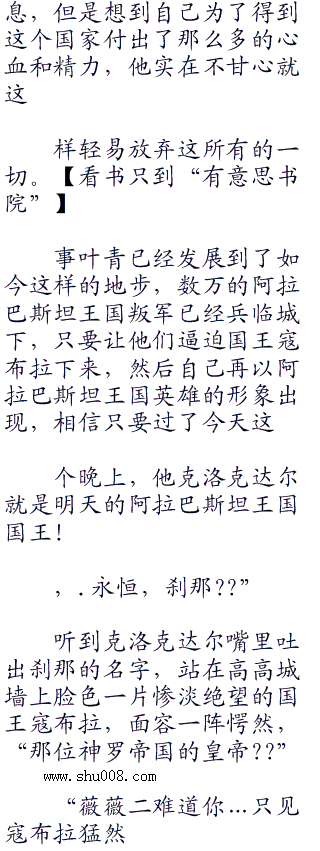 息，但是想到自己为了得到
这个国家付出了那么多的心
血和精力，他实在不甘心就
这
样轻易放弃这所有的一
切。【看书只到“有意思书
院”】
事叶青已经发展到了如
今这样的地步，数万的阿拉
巴斯坦王国叛军已经兵临城
下，只要让他们逼迫国王寇
布拉下来，然后自己再以阿
拉巴斯坦王国英雄的形象出
现，相信只要过了今天这
个晚上，他克洛克达尔
就是明天的阿拉巴斯坦王国
国王！
，．永恒，刹那??”
听到克洛克达尔嘴里吐
出刹那的名字，站在高高城
墙上脸色一片惨淡绝望的国
王寇布拉，面容一阵愕然，
“那位神罗帝国的皇帝??”
www.shu008.com
“薇薇二难道你…只见
寇布拉猛然